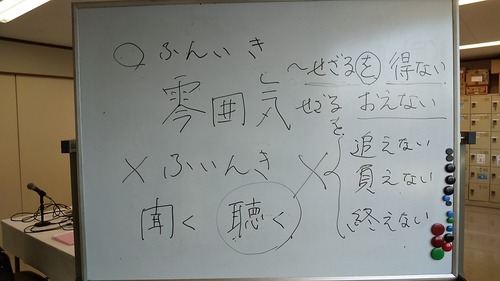 ○ ふんいき
雰囲気
× ふいんき
聞く 聴く
～せざるを得ない
せざる おえない
× を { 追えない
負えない
終えない